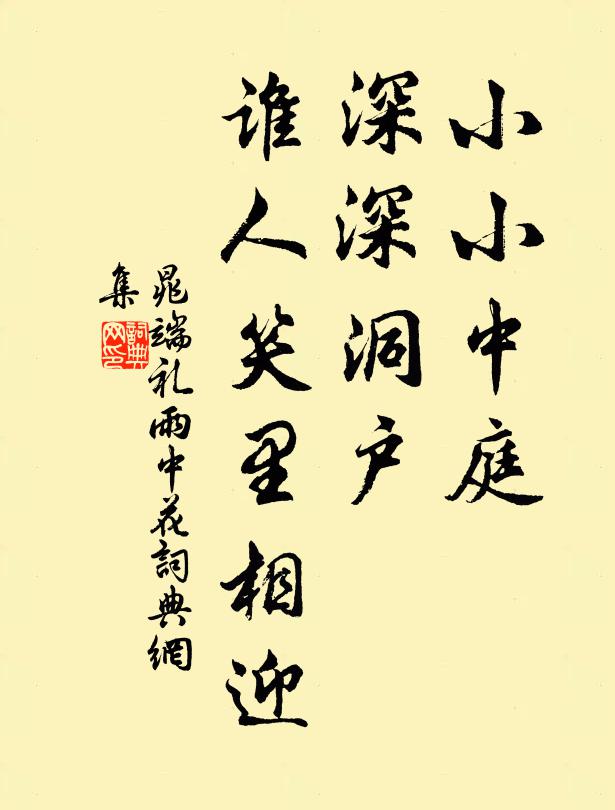 小小中庭
深深洞户
谁人笑里相迎
晁端礼雨中花詞典網
集
詞典网印